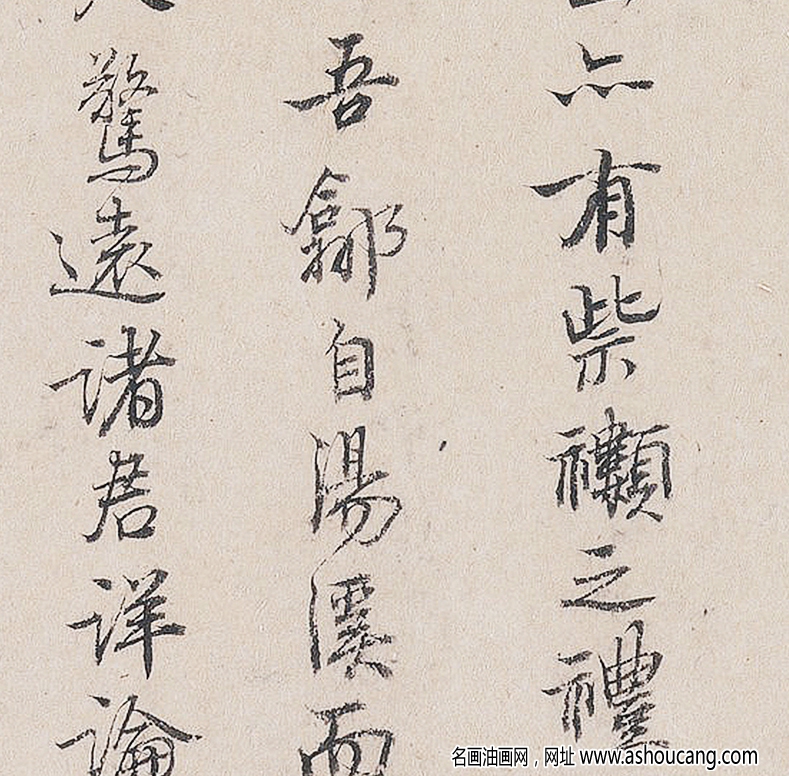 亦有祡禷之禮
吾自湯而
騖遠諸君詳論
名画油画网，网址 www.ashoucang.com